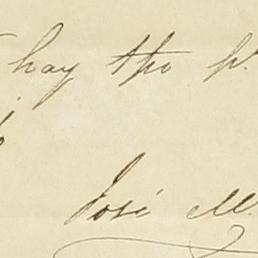 hay tpo p.
José M.